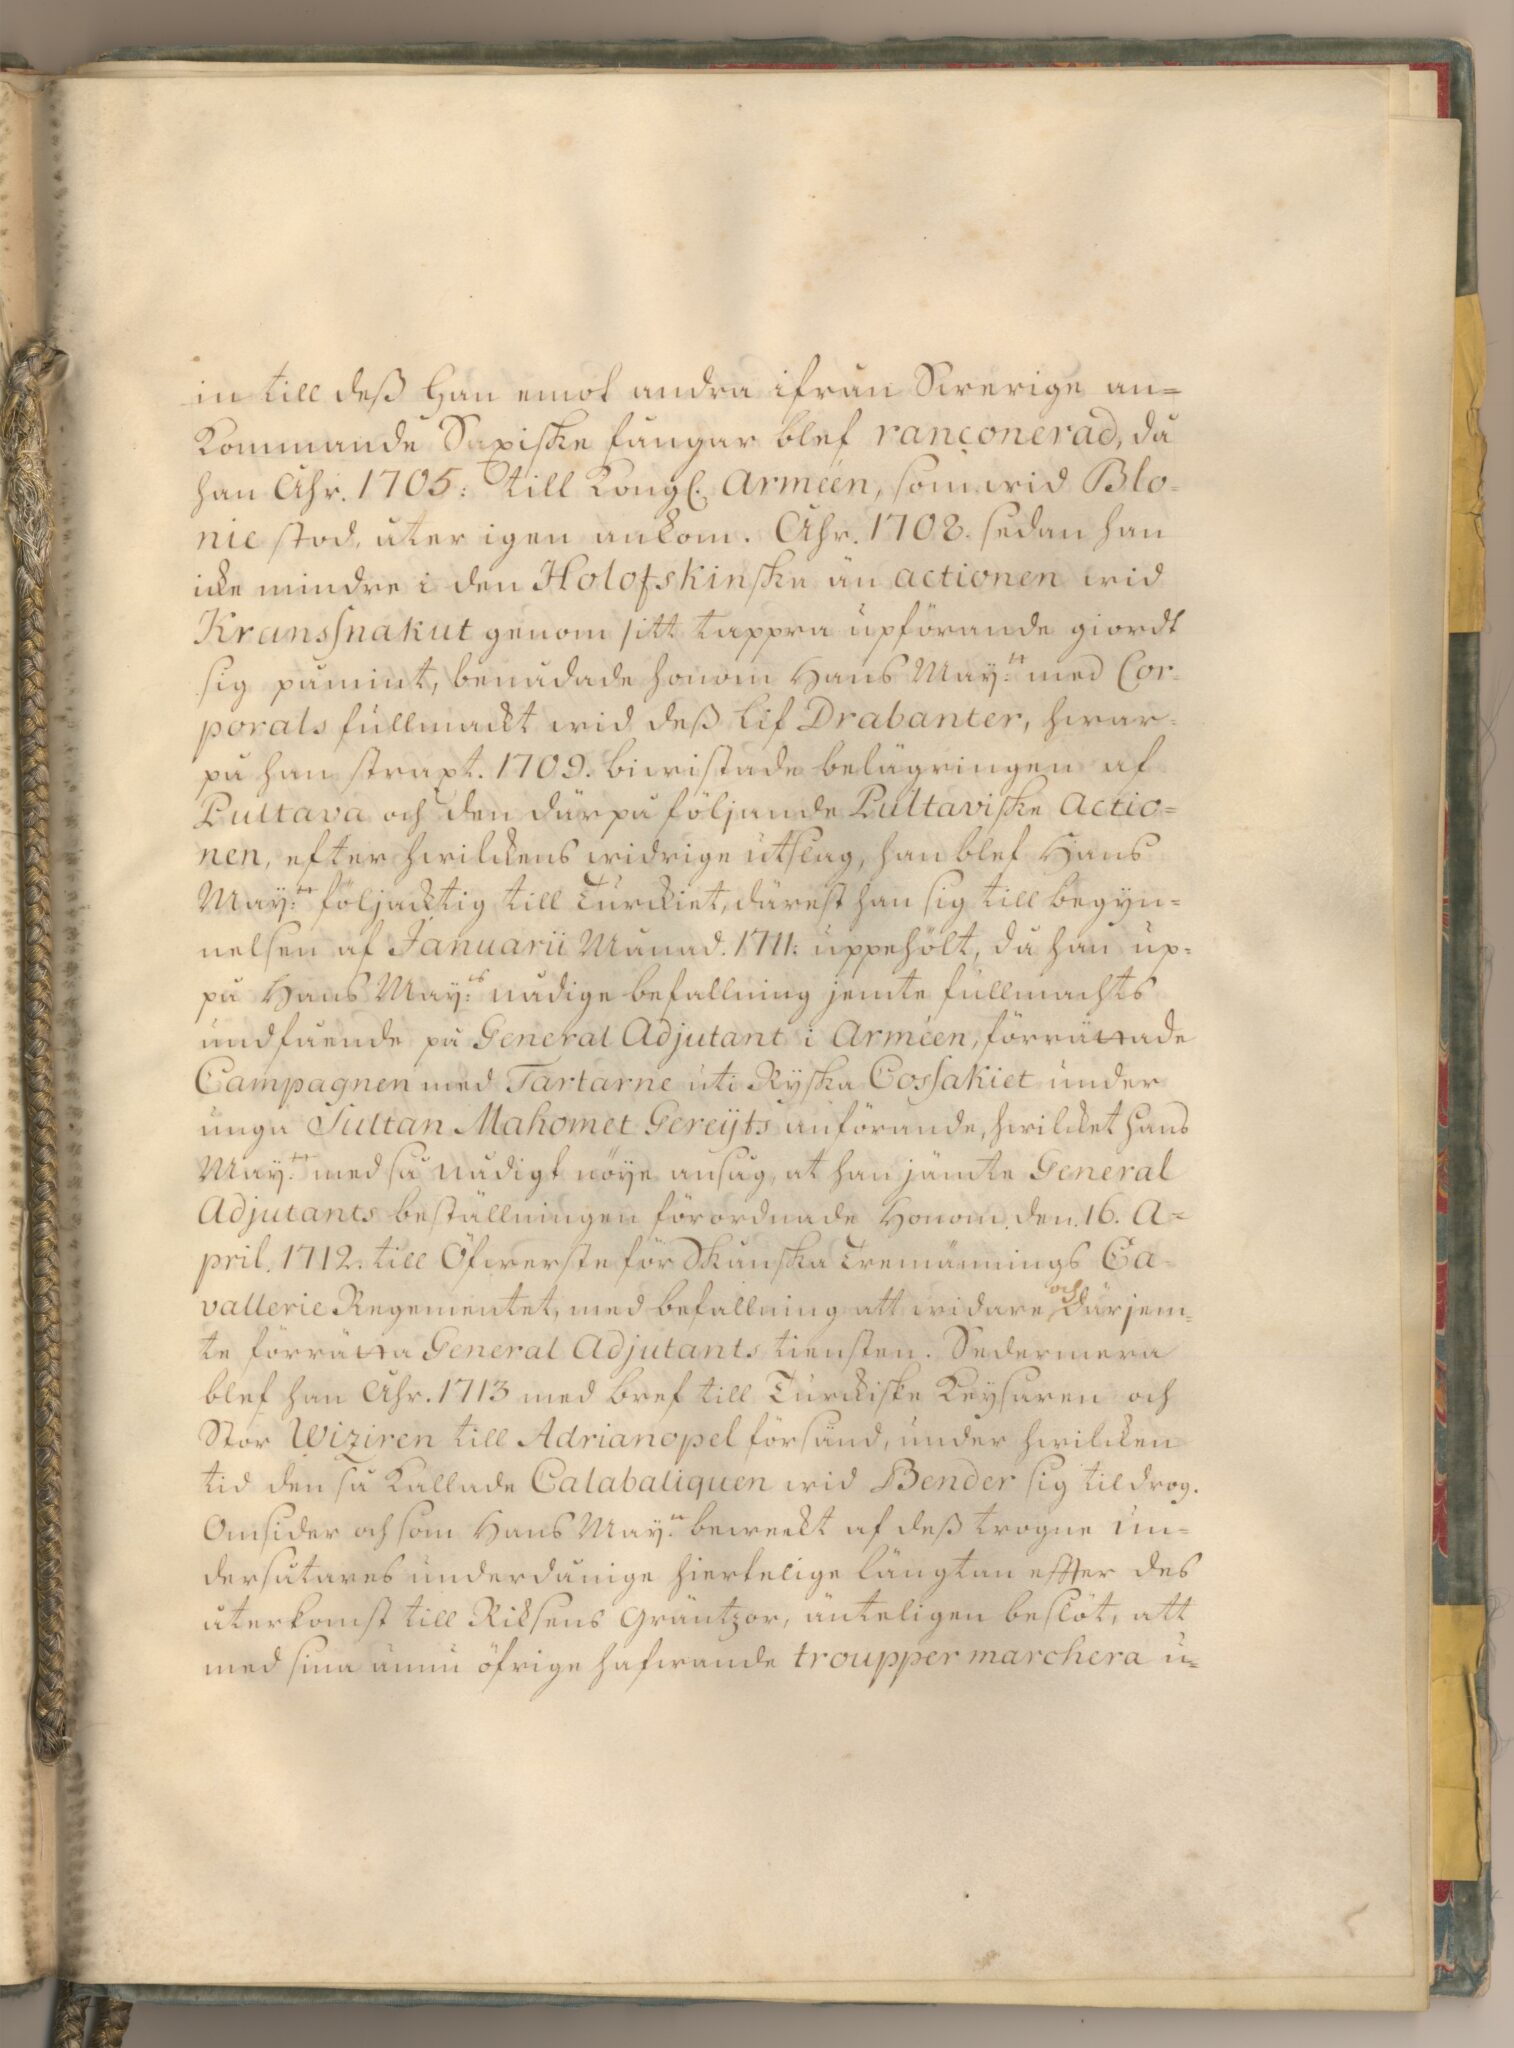 in till deß Han emot andra ifrån Swerige an=
kommande Saxiske fångar blef rançonerad, då
han Åhr. 1705: till Kongl. Arméen, som wid Blo-
nie stod, åter igen ankom. Åhr. 1708. sedan han
icke mindre i den Holofskinska än actionen wid
Kranssnakut genom sitt tappra upförande giordt
sig påmint, benådade honom Hans May:tt med Cor-
porals fullmackt wid deß Lif Drabanter, hwar-
på han straxt. 1709. biwistade belägringen af
Pultava och den därpå följande Pultaviske Actio=
nen, efter hwilckens widrige utslag, han blef Hans
May:tt följacktig till Turckiet, därest han sig till begyn=
nelsen af Januarii Månad. 1711: uppehölt, då han up=
på Hans May:ts nådige befallning jemte fullmachts
undfående på General Adjutant i Arméen, förrättade
Campagnen med Tartarne uti Ryska Cossakiet under
unga Sultan Mahomet Gereijts anförande, hwilcket Hans
May:tt med så nådigt nöye ansåg, at han jämte General
Adjutants beställningen förordnade Honom den 16. A=
pril. 1712. till Öfwerste för Skånska Tremännings Ca-
vallerie Regementet, med befallning att widare och därjem=
te förrätta General Adjutants tiensten. Sedermera
blef han Åhr. 1713 med bref till Turckiske Keysaren och
Stor Wiziren till Adrianopel försänd, under hwilcken
tid den så kallade Calabaliquen wid Bender sig tildrog.
Omsider och som Hans May:tt beweckt af deß trogne un=
dersåtares underdånige hiertelige längtan effter des
återkomst till Riksens Gräntzor, änteligen beslöt, att
med sina ännu öfrige hafwande troupper marchera u=